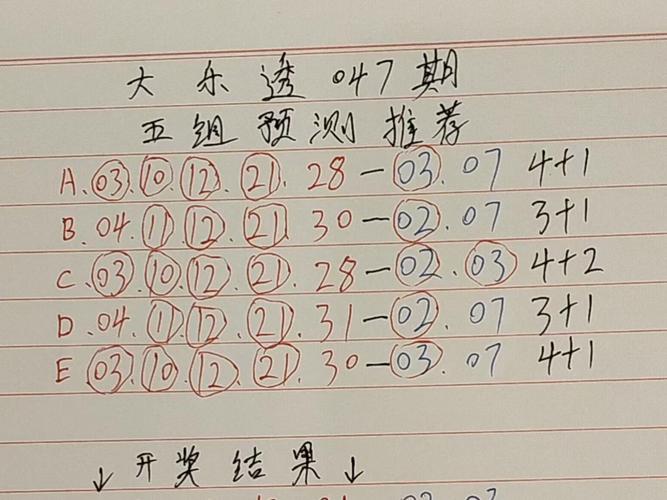 大乐透047期
五组预测推荐
A.03.10.12.21.28-03.07 4+1
B.04.11.12.21.30-02.07 3+1
C.03.10.12.21.28-02.03 4+2
D.04.11.12.21.31-02.07 3+1
E.03.10.12.21.30-03.07 4+1
↓开奖结果↓